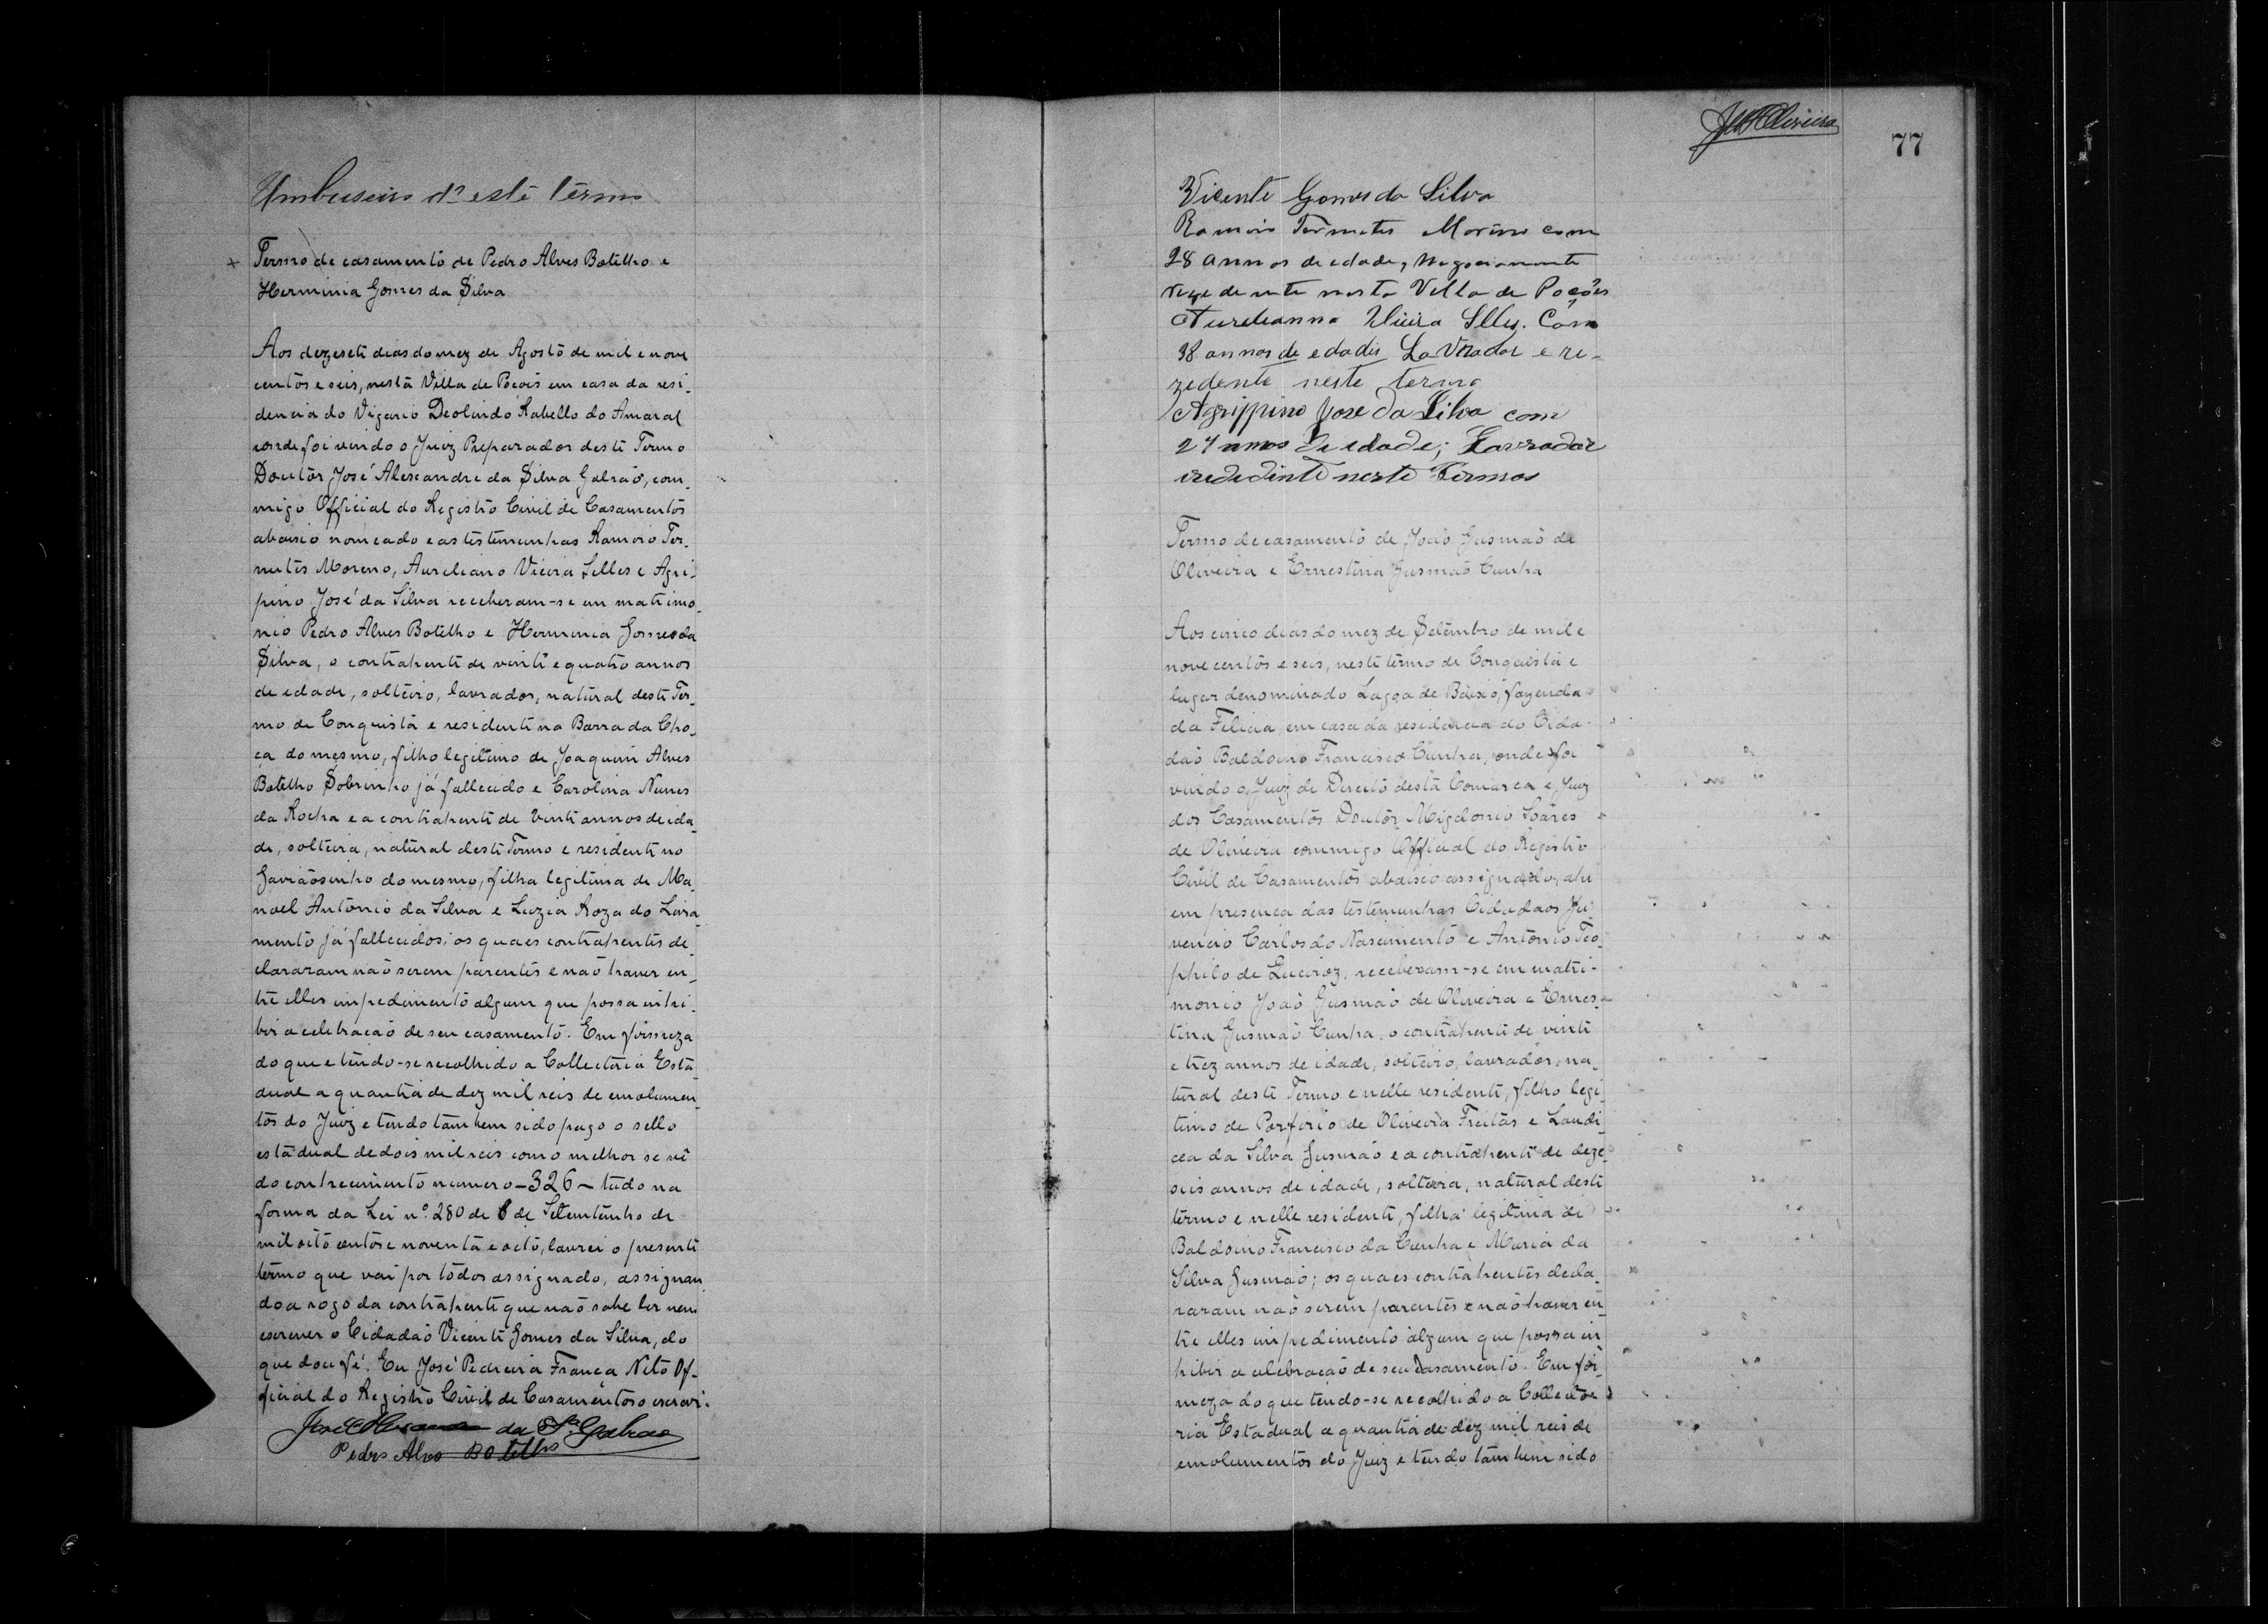 Umbuseiro d'este têrmo
Termo de casamento de Pedro Alves Botelho e
Herminia Gomes da Silva
Aos dezesete dias do mez de Agosto de mil e nove
centos e seis, nesta Villa de Poções em casa da resi-
dencia do Vigario Deolindo Rabello do Amaral
onde foi vindo o Juiz Preparador deste Termo
Doutor José Alexandre da Silva Galvão, com-
migo Official do Registro Civil de Casamentos
abaixo nomeado e as testemunhas Ramiro Ter-
mutes Moreno, Aureliano Vieira Lelles e Agri-
pino José da Silva receberam-se em matrimo-
nio Pedro Alves Botelho e Herminia Gomes da
Silva, o contrahente de vinte e quatro annos
de edade, solteiro, lavrador, natural deste Ter-
mo de Conquista e residente na Barra da Cho-
ça do mesmo, filho legitimo de Joaquim Alves
Botelho Sobrinho já fallecido e Carolina Nunes
da Rocha e a contrahente de vinte annos de ida-
de, solteira, natural deste Termo e residente no
Gaviãosinho do mesmo, filha legitima de Ma-
noel Antonio da Silva e Luzia Roza do Livra-
mento já fallecidos; os quaes contrahentes de-
clararam não serem parentes e não haver en-
tre elles impedimento algum que possa inhi-
bir a celebração de seu casamento. Em firmeza
do que e tendo-se recolhido a Collectoria Esta-
dual a quantia de dez mil reis de emolumen-
tos do Juiz e tendo tambem sido pago o sello
estadual de dois mil reis como melhor se vê
do conhecimento numero -326- tudo na
forma da Lei nº 280 de 6 de Setembro de
mil oito centos e noventa e oito, lavrei o presente
têrmo que vai por todos assignado, assignan-
do a rogo da contrahente que não sabe ler nem
escrever o Cidadão Vicente Gomes da Silva, do
que dou fé. Eu José Pedreira França Neto Of-
ficial do Registro Civil de Casamentos o escrevi.
José Alexandre da Sª Galvão
Pedro Alves Botelho
77
Vicente Gomes da Silva
Ramiro Termutes Moreno com
28 annos de edade, Negociante
rezedente nesta Villa de Poções
Aureleanno Vieira Com
38 annos de edades Lavrador e re-
zedente neste termo
Agrippino Jose da Silva com
24 annos de edade; Lavrador
neste Termos
Termo de casamento de João Gusmão de
Oliveira e Ernestina Gusmão Cunha
Aos cinco dias do mez de Setembro de mil e
nove centos e seis, neste têrmo de Conquista e
lugar denominado Lagoa de Baixo, fazenda
da Felicia, em casa da residencia do Cida-
dão Baldoino Francisco Cunha, onde foi
vindo o Juiz de Direito desta Comarca e Juiz
dos Casamentos Doutor Migdonio Soares
de Oliveira commigo Official do Registro
Civil de Casamentos abaixo assignado, ahi
em presença das testemunhas Cidadaos Ju-
vencio Carlos do Nascimento e Antonio Teo-
philo de Queiroz, receberam-se em matri-
monio João Gusmão de Oliveira e Ernes-
tina Gusmão Cunha, o contrahente de vinte
e trez annos de idade, solteiro, lavrador, na-
tural deste Termo e nelle residente, filho legi-
timo de Porfirio de Oliveira Freitas e Laudi-
cea da Silva Gusmão e a contrahente de deze-
seis annos de idade, solteira, natural deste
têrmo e nelle residente, filha legitima de
Baldoino Francisco da Cunha e Maria da
Silva Gusmão; os quaes contrahentes decla-
raram não serem parentes e não haver en-
tre elles impedimento algum que possa in
hibir a celebração de seu casamento. Em fir-
meza do que tendo-se recolhido a Collecto-
ria Estadual a quantia de dez mil reis de
emolumentos do Juiz e tendo tambem sido